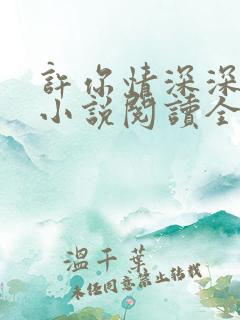 許你情深深
小說閱讀全
溫千葉
未经同意禁止转载